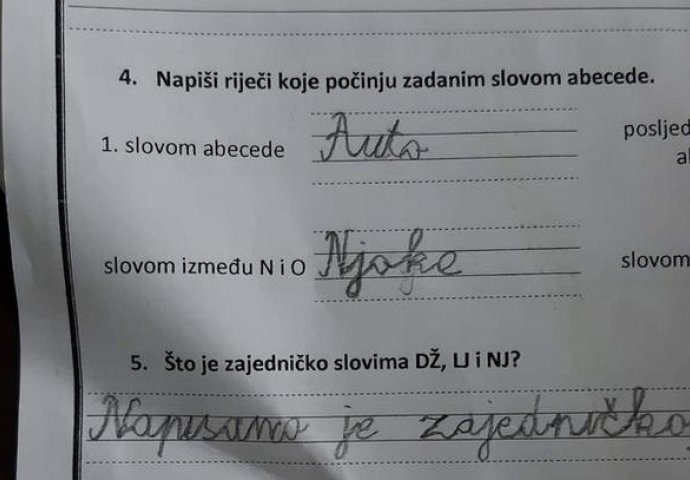 4. Napiši riječi koje počinju zadanim slovom abecede.
1. slovom abecede Auto posljed
al
slovom između N i O Njoke slovom
5. Što je zajedničko slovima DŽ, LJ i NJ?
Napisano je zajedničko